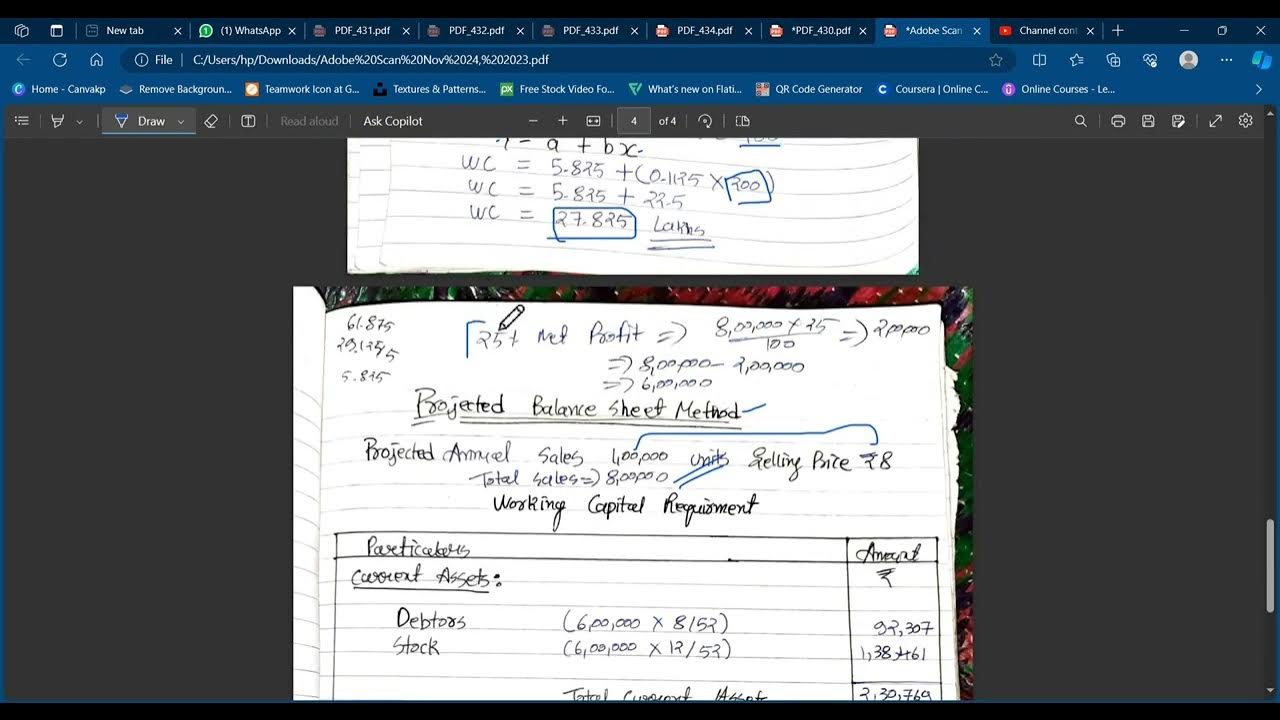 New tab
(1) WhatsApp
PDF_431.pdf
PDF_432.pdf
PDF_433.pdf
PDF_434.pdf
*PDF_430.pdf
*Adobe Scan
Channel cont
File
C:/Users/hp/Downloads/Adobe%20Scan%20Nov%2024,%202023.pdf
Home - Canvakp
Remove Background...
Teamwork Icon at G...
Textures & Patterns...
Free Stock Video Fo...
What's new on Flati...
QR Code Generator
Coursera | Online C...
Online Courses - Le...
Draw
Read aloud
Ask Copilot
4 of 4
= a + bx.
WC = 5.825 + (0.1125 × 200)
WC = 5.825 + 22.5
WC = 27.825 Lakhs
61.875
5.825
Net Profit => 8,00,000 × 25 / 100 => 2,00,000
=> 8,00,000 - 2,00,000
=> 6,00,000
Projected Balance Sheet Method
Projected Annual Sales 1,00,000 units Selling Price ₹8
Total Sales => 8,00,000
Working Capital Requirment
Particulers Amount
₹
Current Assets:
Debtors (6,00,000 × 8/52) 92,307
Stock (6,00,000 × 12/52) 1,38,461
Total Current Asset 2,30,769